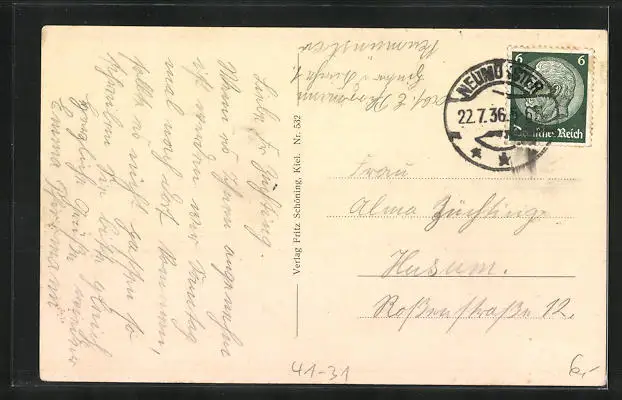 Liebe Fr. Züchting.
Wenn es Ihnen angenehm
ist würden wir Sonntag
mal nach dort kommen,
sollte es nicht passen so
schreiben Sie bitte gleich
Emma
Neumünster
Verlag Fritz Schöning, Kiel. Nr. 532
NEUMÜNSTER
22.7.36.
6 6
Deutsches Reich
Frau
Alma Züchting
Husum.
Roßenstraße 12.
41-31
6,-